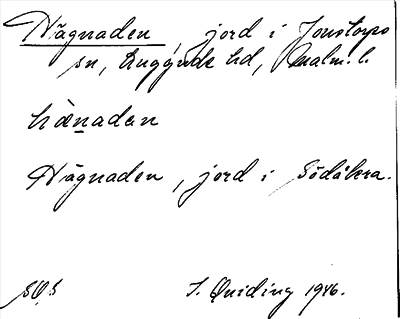 Hägnaden, jord i Jonstorps
sn, Luggude hd, Malm. l.
hä̀nadan
Hägnaden, jord i Södåkra.
S. Qviding 1946.